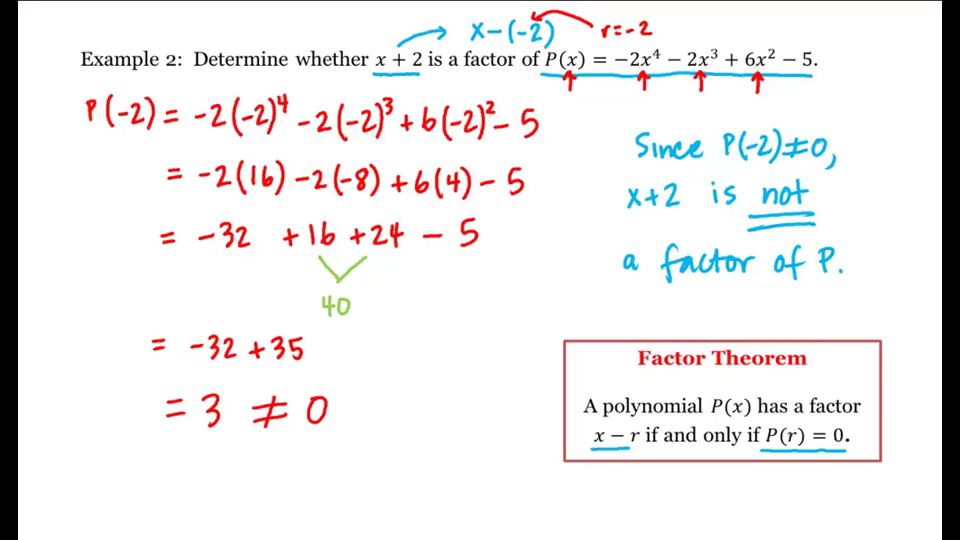 x-(-2) r=-2
Example 2: Determine whether x + 2 is a factor of P(x) = −2x⁴ − 2x³ + 6x² − 5.
P(-2) = -2(-2)⁴ -2(-2)³ +6(-2)² - 5
= -2(16) -2(-8) +6(4) - 5
= -32 +16 +24 - 5
40
= -32 +35
= 3 ≠ 0
Since P(-2)≠0,
x+2 is not
a factor of P.
Factor Theorem
A polynomial P(x) has a factor
x − r if and only if P(r) = 0.